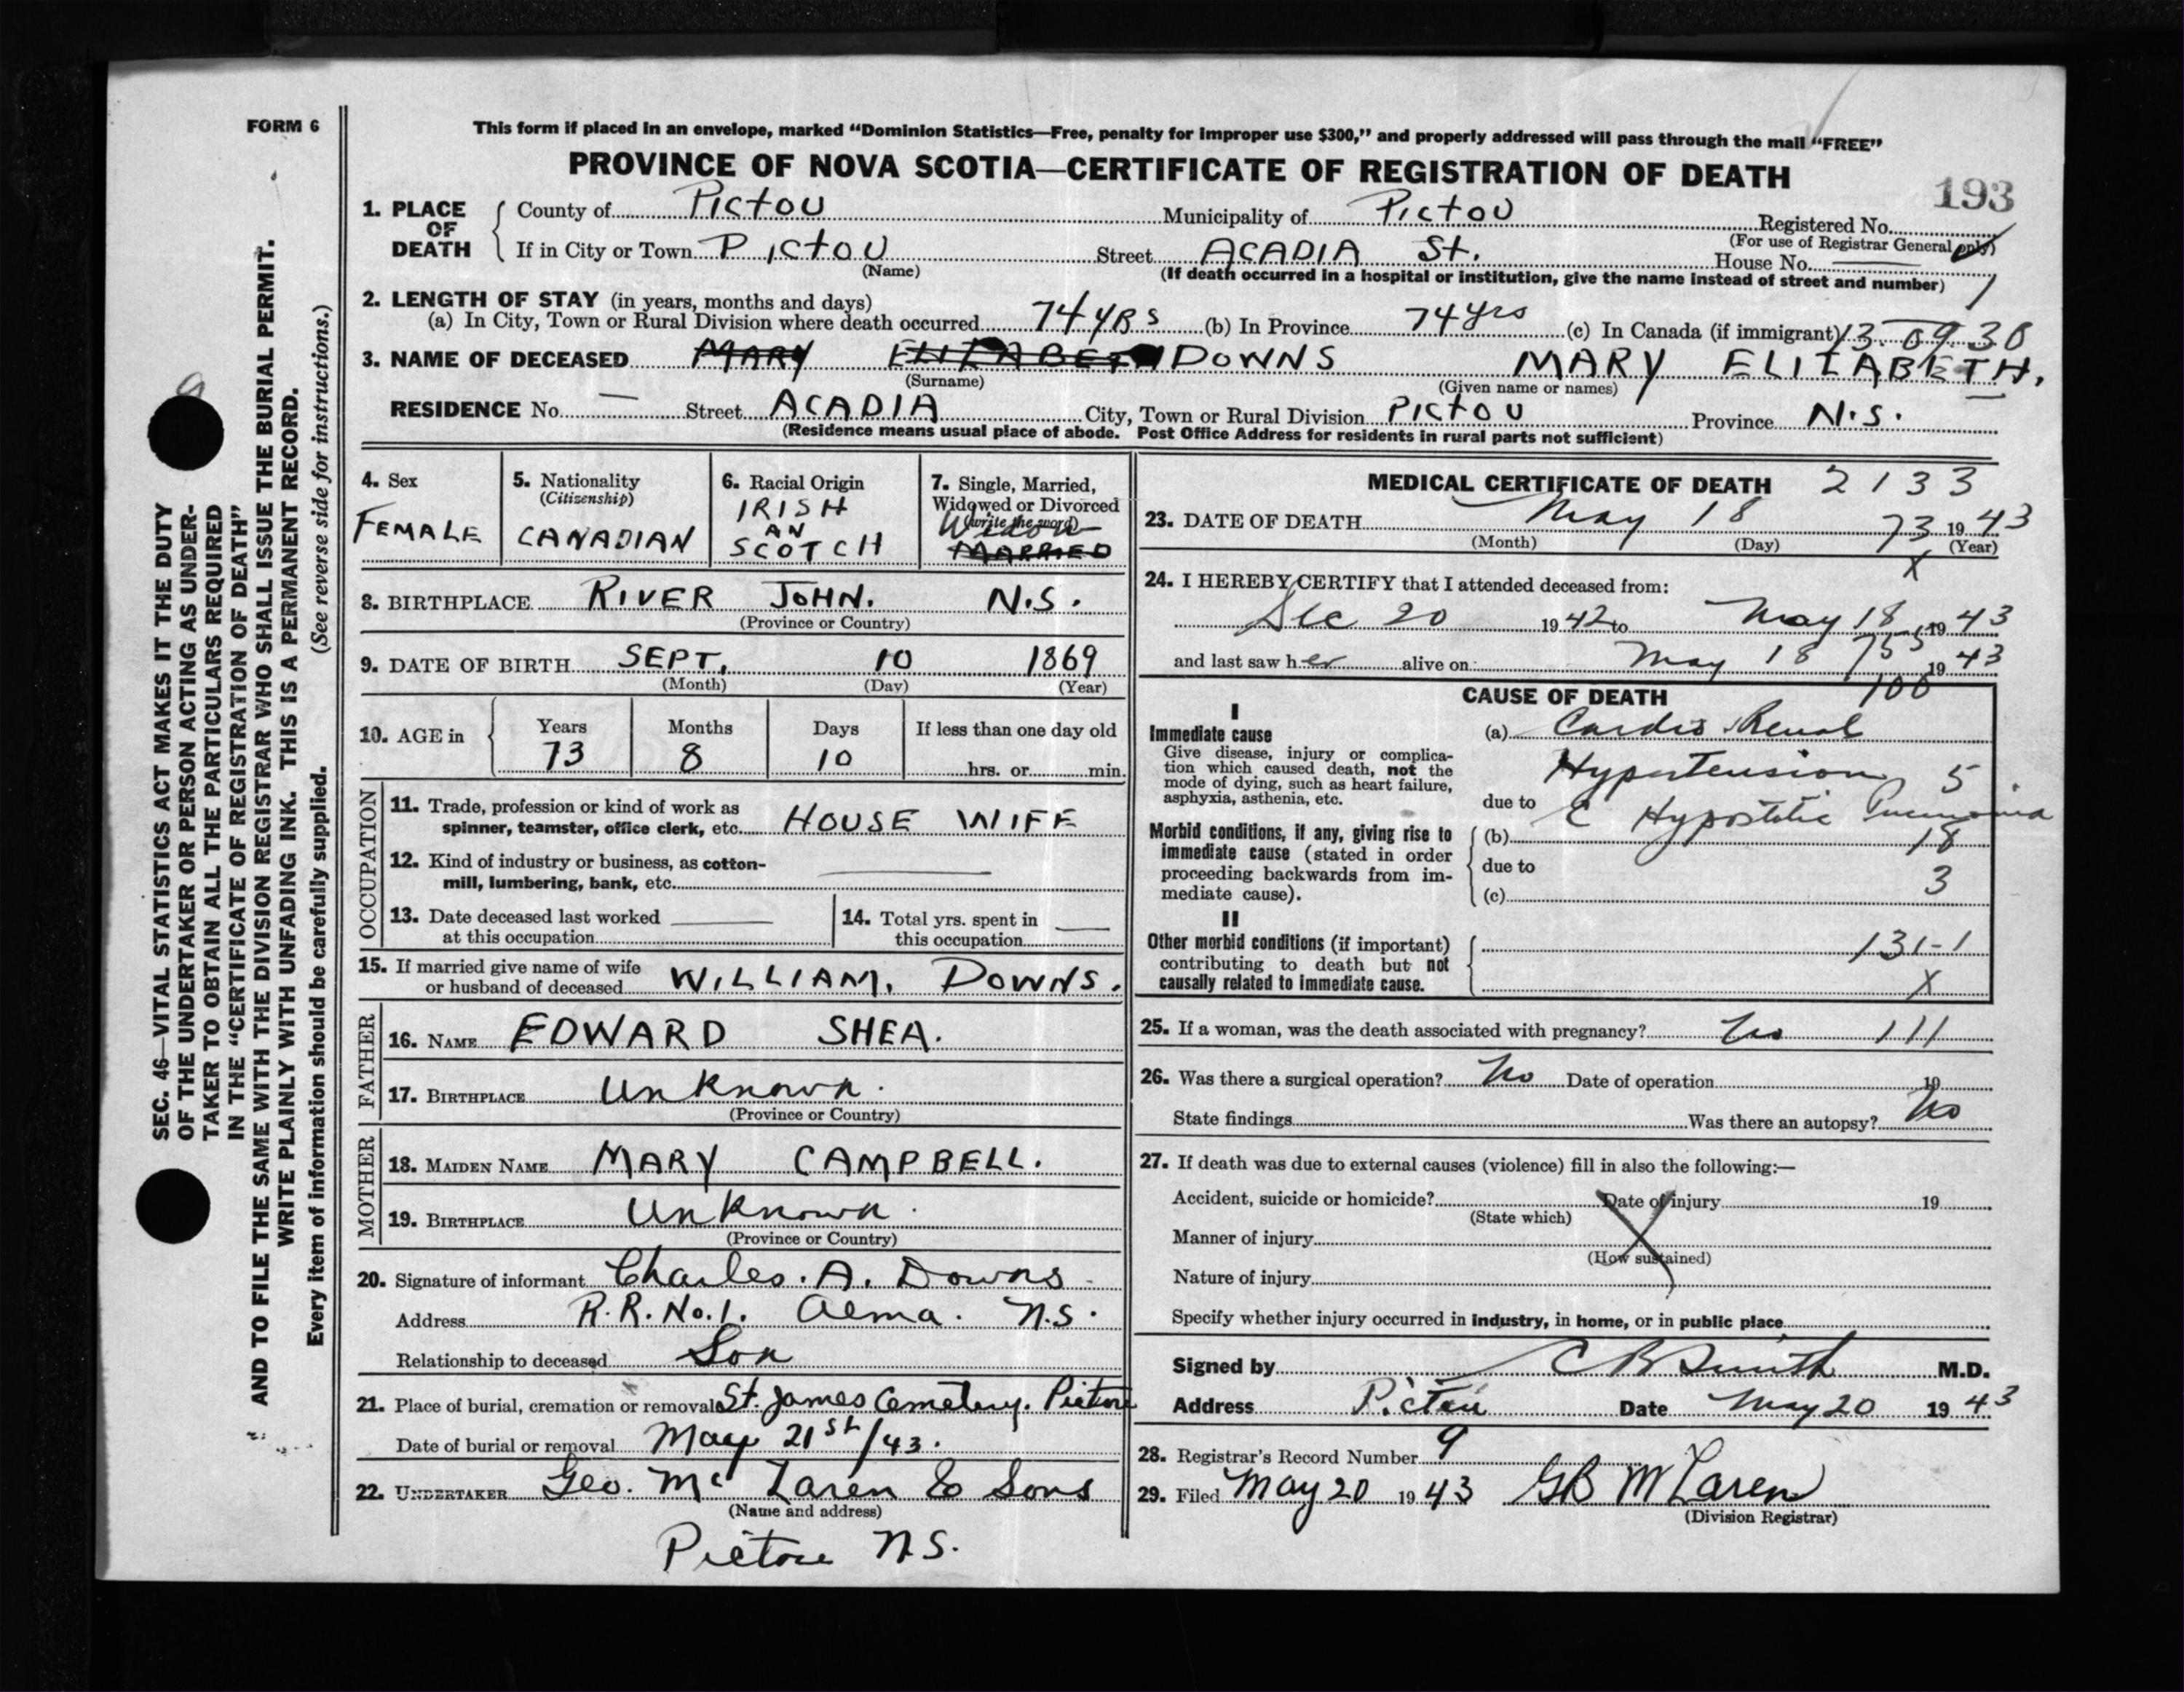 FORM 6
This form if placed in an envelope, marked “Dominion Statistics—Free, penalty for improper use $300,” and properly addressed will pass through the mail “FREE”
PROVINCE OF NOVA SCOTIA—CERTIFICATE OF REGISTRATION OF DEATH
193
1. PLACE OF DEATH
County of Pictou Municipality of Pictou Registered No.
(For use of Registrar General only)
If in City or Town Pictou Street ACADIA St. House No. —
(Name) (If death occurred in a hospital or institution, give the name instead of street and number)
2. LENGTH OF STAY (in years, months and days)
(a) In City, Town or Rural Division where death occurred 74 YRS (b) In Province 74 yrs (c) In Canada (if immigrant)
3. NAME OF DECEASED MARY ELIZABETH DOWNS MARY ELIZABETH.
(Surname) (Given name or names)
RESIDENCE No. — Street ACADIA City, Town or Rural Division PICTOU Province N.S.
(Residence means usual place of abode. Post Office Address for residents in rural parts not sufficient)
4. Sex FEMALE
5. Nationality (Citizenship) CANADIAN
6. Racial Origin IRISH AN SCOTCH
7. Single, Married, Widowed or Divorced (write the word) Widow MARRIED
8. BIRTHPLACE RIVER JOHN. N.S.
(Province or Country)
9. DATE OF BIRTH SEPT. 10 1869
(Month) (Day) (Year)
10. AGE in Years 73 Months 8 Days 10 If less than one day old
hrs. or min.
OCCUPATION
11. Trade, profession or kind of work as
spinner, teamster, office clerk, etc. HOUSE WIFE
12. Kind of industry or business, as cotton-
mill, lumbering, bank, etc. —
13. Date deceased last worked
at this occupation —
14. Total yrs. spent in
this occupation —
15. If married give name of wife
or husband of deceased WILLIAM. DOWNS.
FATHER
16. NAME EDWARD SHEA.
17. BIRTHPLACE Unknown.
(Province or Country)
MOTHER
18. MAIDEN NAME MARY CAMPBELL.
19. BIRTHPLACE Unknown.
(Province or Country)
20. Signature of informant Charles. A. Downs
Address R.R. No. 1. Alma. N.S.
Relationship to deceased Son
21. Place of burial, cremation or removal St. James Cemetery. Pictou
Date of burial or removal May 21st/43.
22. UNDERTAKER Geo. Mc Laren & Sons
(Name and address)
Pictou N.S.
MEDICAL CERTIFICATE OF DEATH 2133
23. DATE OF DEATH May 18 73 1943
(Month) (Day) (Year)
X
24. I HEREBY CERTIFY that I attended deceased from:
Dec 20 1942 to May 18 1943
and last saw her alive on May 18 1943
CAUSE OF DEATH 100
I
Immediate cause
Give disease, injury or complica-
tion which caused death, not the
mode of dying, such as heart failure,
asphyxia, asthenia, etc.
(a) Cardio Renal
Hypertension 5
due to c Hypostatic Pneumonia
Morbid conditions, if any, giving rise to
immediate cause (stated in order
proceeding backwards from im-
mediate cause).
(b) 18
due to 3
(c)
II
Other morbid conditions (if important)
contributing to death but not
causally related to immediate cause.
131-1
X
25. If a woman, was the death associated with pregnancy? No 111
26. Was there a surgical operation? No Date of operation 19
State findings Was there an autopsy? No
27. If death was due to external causes (violence) fill in also the following:—
Accident, suicide or homicide? Date of injury 19
(State which)
Manner of injury
(How sustained)
Nature of injury
Specify whether injury occurred in industry, in home, or in public place
Signed by C B Smith M.D.
Address Pictou Date May 20 1943
28. Registrar's Record Number 9
29. Filed May 20 1943 GB McLaren
(Division Registrar)
SEC. 46—VITAL STATISTICS ACT MAKES IT THE DUTY
OF THE UNDERTAKER OR PERSON ACTING AS UNDER-
TAKER TO OBTAIN ALL THE PARTICULARS REQUIRED
IN THE “CERTIFICATE OF REGISTRATION OF DEATH”
AND TO FILE THE SAME WITH THE DIVISION REGISTRAR WHO SHALL ISSUE THE BURIAL PERMIT.
WRITE PLAINLY WITH UNFADING INK. THIS IS A PERMANENT RECORD.
Every item of information should be carefully supplied. (See reverse side for instructions.)